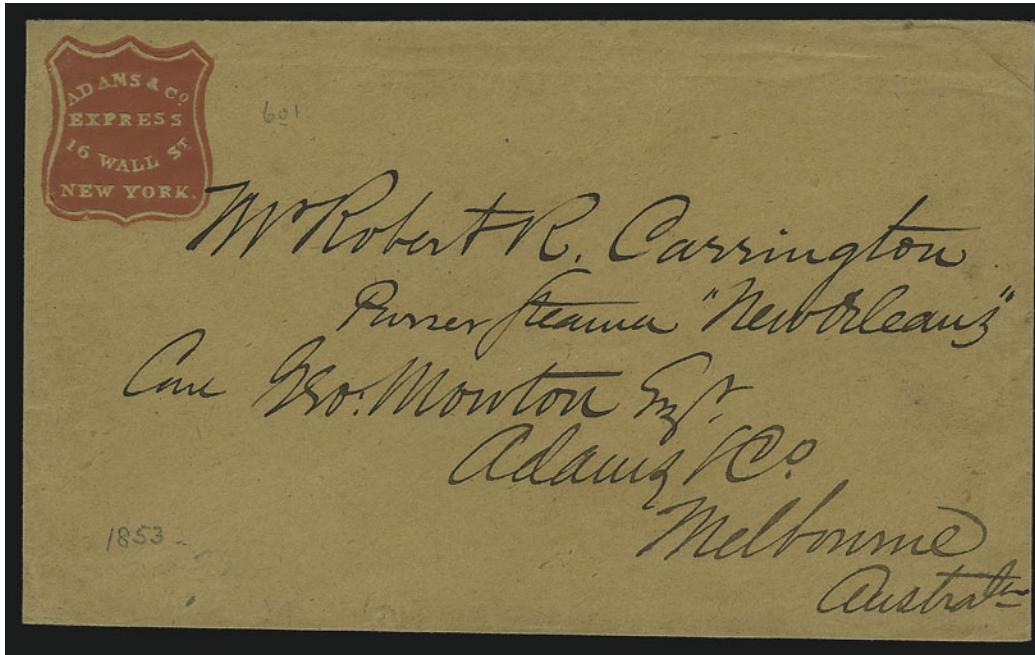 ADAMS & Co.
EXPRESS
16 WALL ST
NEW YORK.
601
Mr Robert R. Carrington
Purser Steamer "New Orleans"
Care Geo. Mowton Esqr.
Adams & Co
Melbourne
Australia
1853